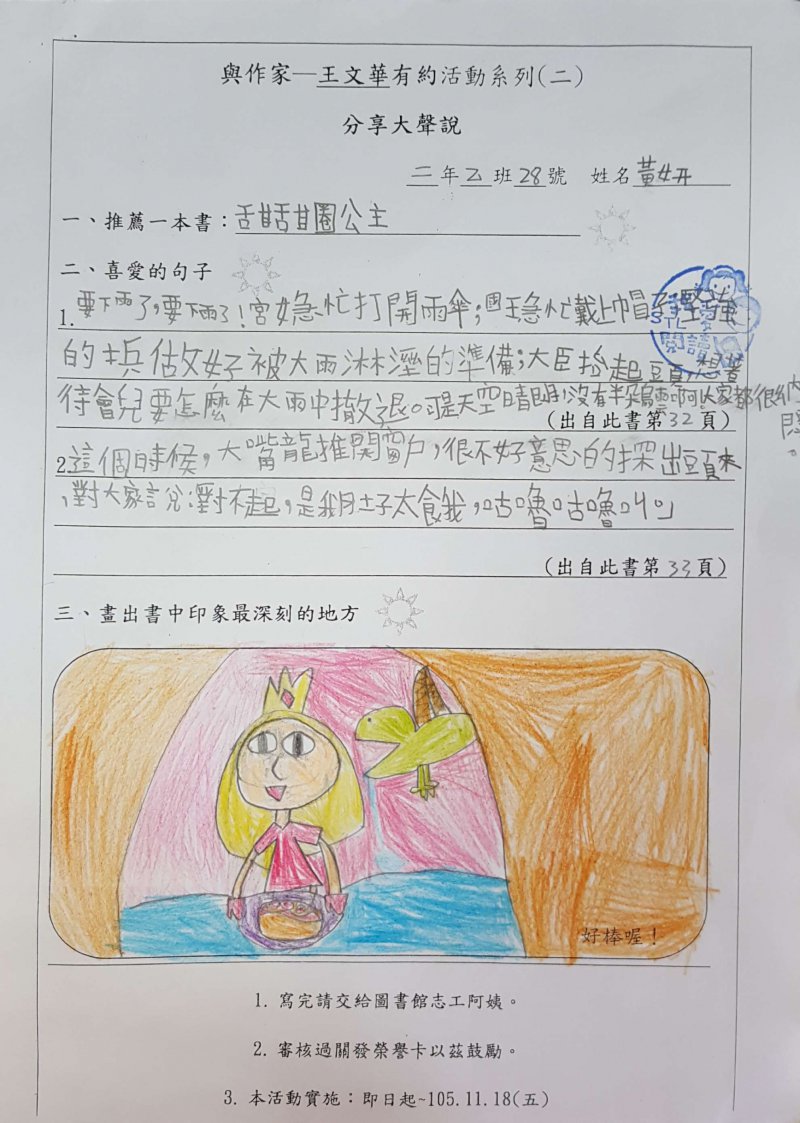 與作家—王文華有約活動系列(二)
分享大聲說
二年乙班28號 姓名黃妍
一、推薦一本書：甜甜圈公主
二、喜愛的句子
1.要下雨了，要下雨了！宮女急忙打開雨傘；國王急忙戴上帽子；堅強
的兵做好被大雨淋溼的準備；大臣抬起頭，想著
待會兒要怎麼在大雨中撤退。可是天空晴朗，沒有半朵烏雲啊！大家都很納悶。
(出自此書第32頁)
2.這個時候，大嘴龍推開窗戶，很不好意思的探出頭來
，對大家說：對不起，是我肚子太餓，咕嚕咕嚕叫。」
(出自此書第33頁)
三、畫出書中印象最深刻的地方
好棒喔！
1. 寫完請交給圖書館志工阿姨。
2. 審核過關發榮譽卡以茲鼓勵。
3. 本活動實施：即日起~105.11.18(五)